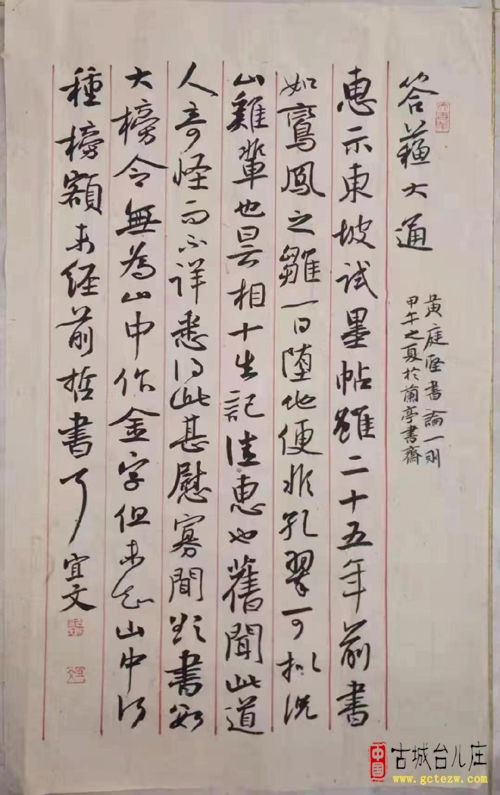 答蘓大通
惠示東坡試墨帖雖二十五年前書
如鸞鳳之雛一日墮地便非孔翠可擬況
山雞輩也昙相十出記佳惠也舊聞此道
人奇怪而不詳悉得此甚慰寡聞欲書

大榜令無為山中作金字但未知山中得
種榜額未經前哲書了宜文
黄庭堅書論一则
甲午之夏於蘭亭書齋
中国
古城台儿庄
www.gctezw.com